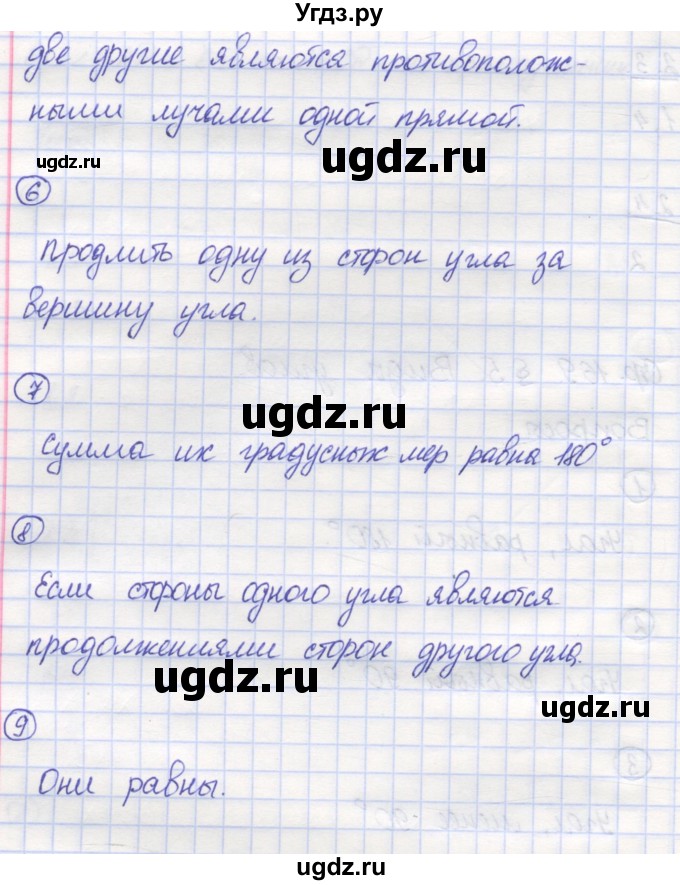 Угдз.ру
две другие являются противополож-
ными лучами одной прямой.
ugdz.ru
ugdz.ru
6
продлить одну из сторон угла за
вершину угла.
7
ugdz.ru
Сумма их градусных мер равна 180°
8
Если стороны одного угла являются
продолжениями сторон другого угла.
ugdz.ru
ugdz.ru
9
Они равны.
ugdz.ru
ugdz.ru